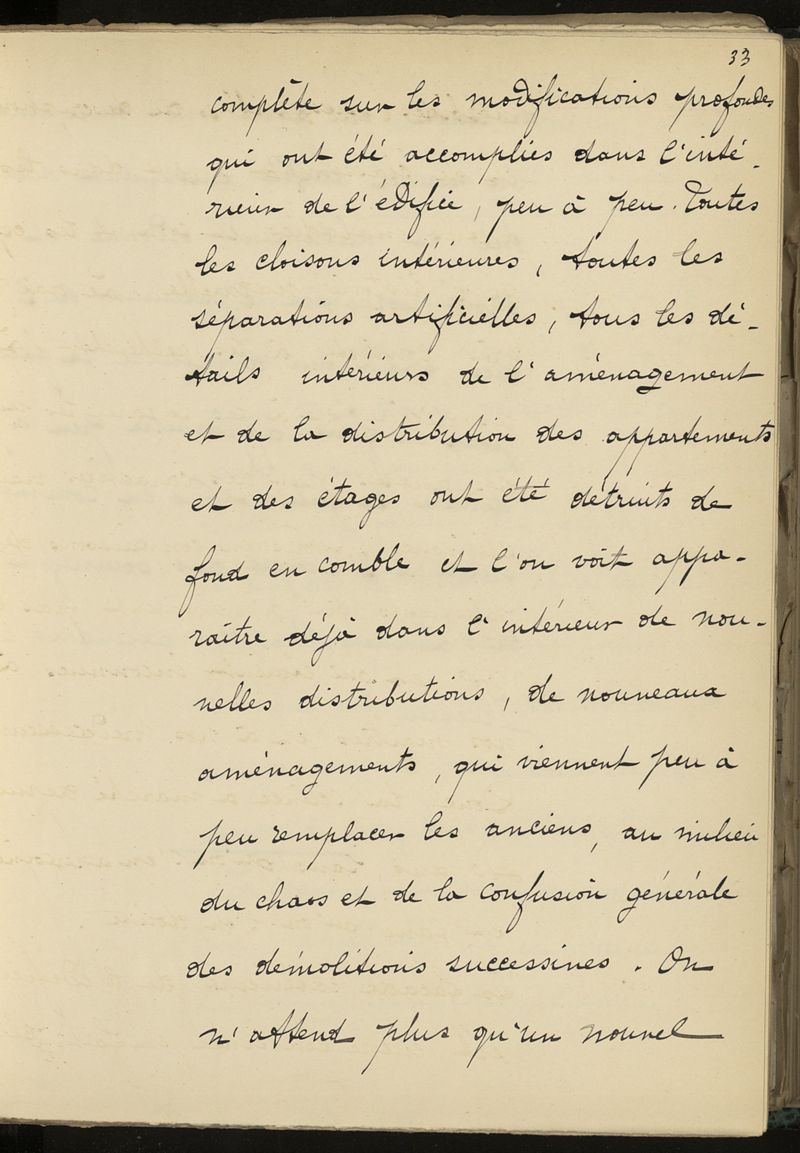 33
complète sur les modifications profondes
qui ont été accomplies dans l'inté-
rieur de l'édifice, peu à peu. Toutes
les cloisons intérieures, toutes les
séparations artificielles, tous les dé-
tails intérieurs de l'aménagement
et de la distribution des appartements
et des étages ont été détruits de
fond en comble et l'on voit appa-
raître déjà dans l'intérieur de nou-
velles distributions, de nouveaux
aménagements, qui viennent peu à
peu remplacer les anciens, au milieu
du chaos et de la confusion générale
des démolitions successives. On
n'attend plus qu'un nouvel